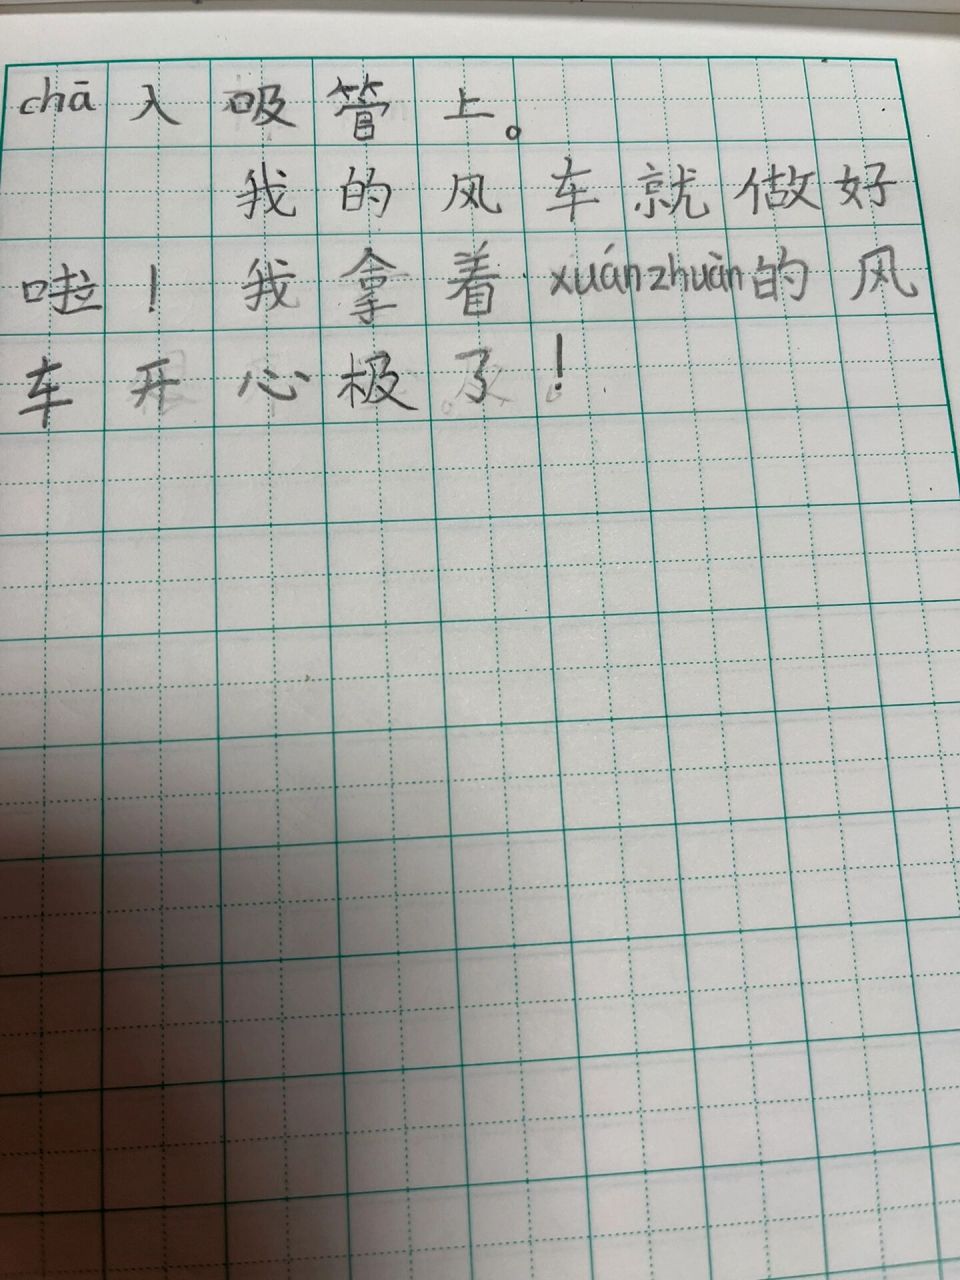 chā入吸管上。
我的风车就做好
啦！我拿着xuánzhuàn的风
车开心极了！